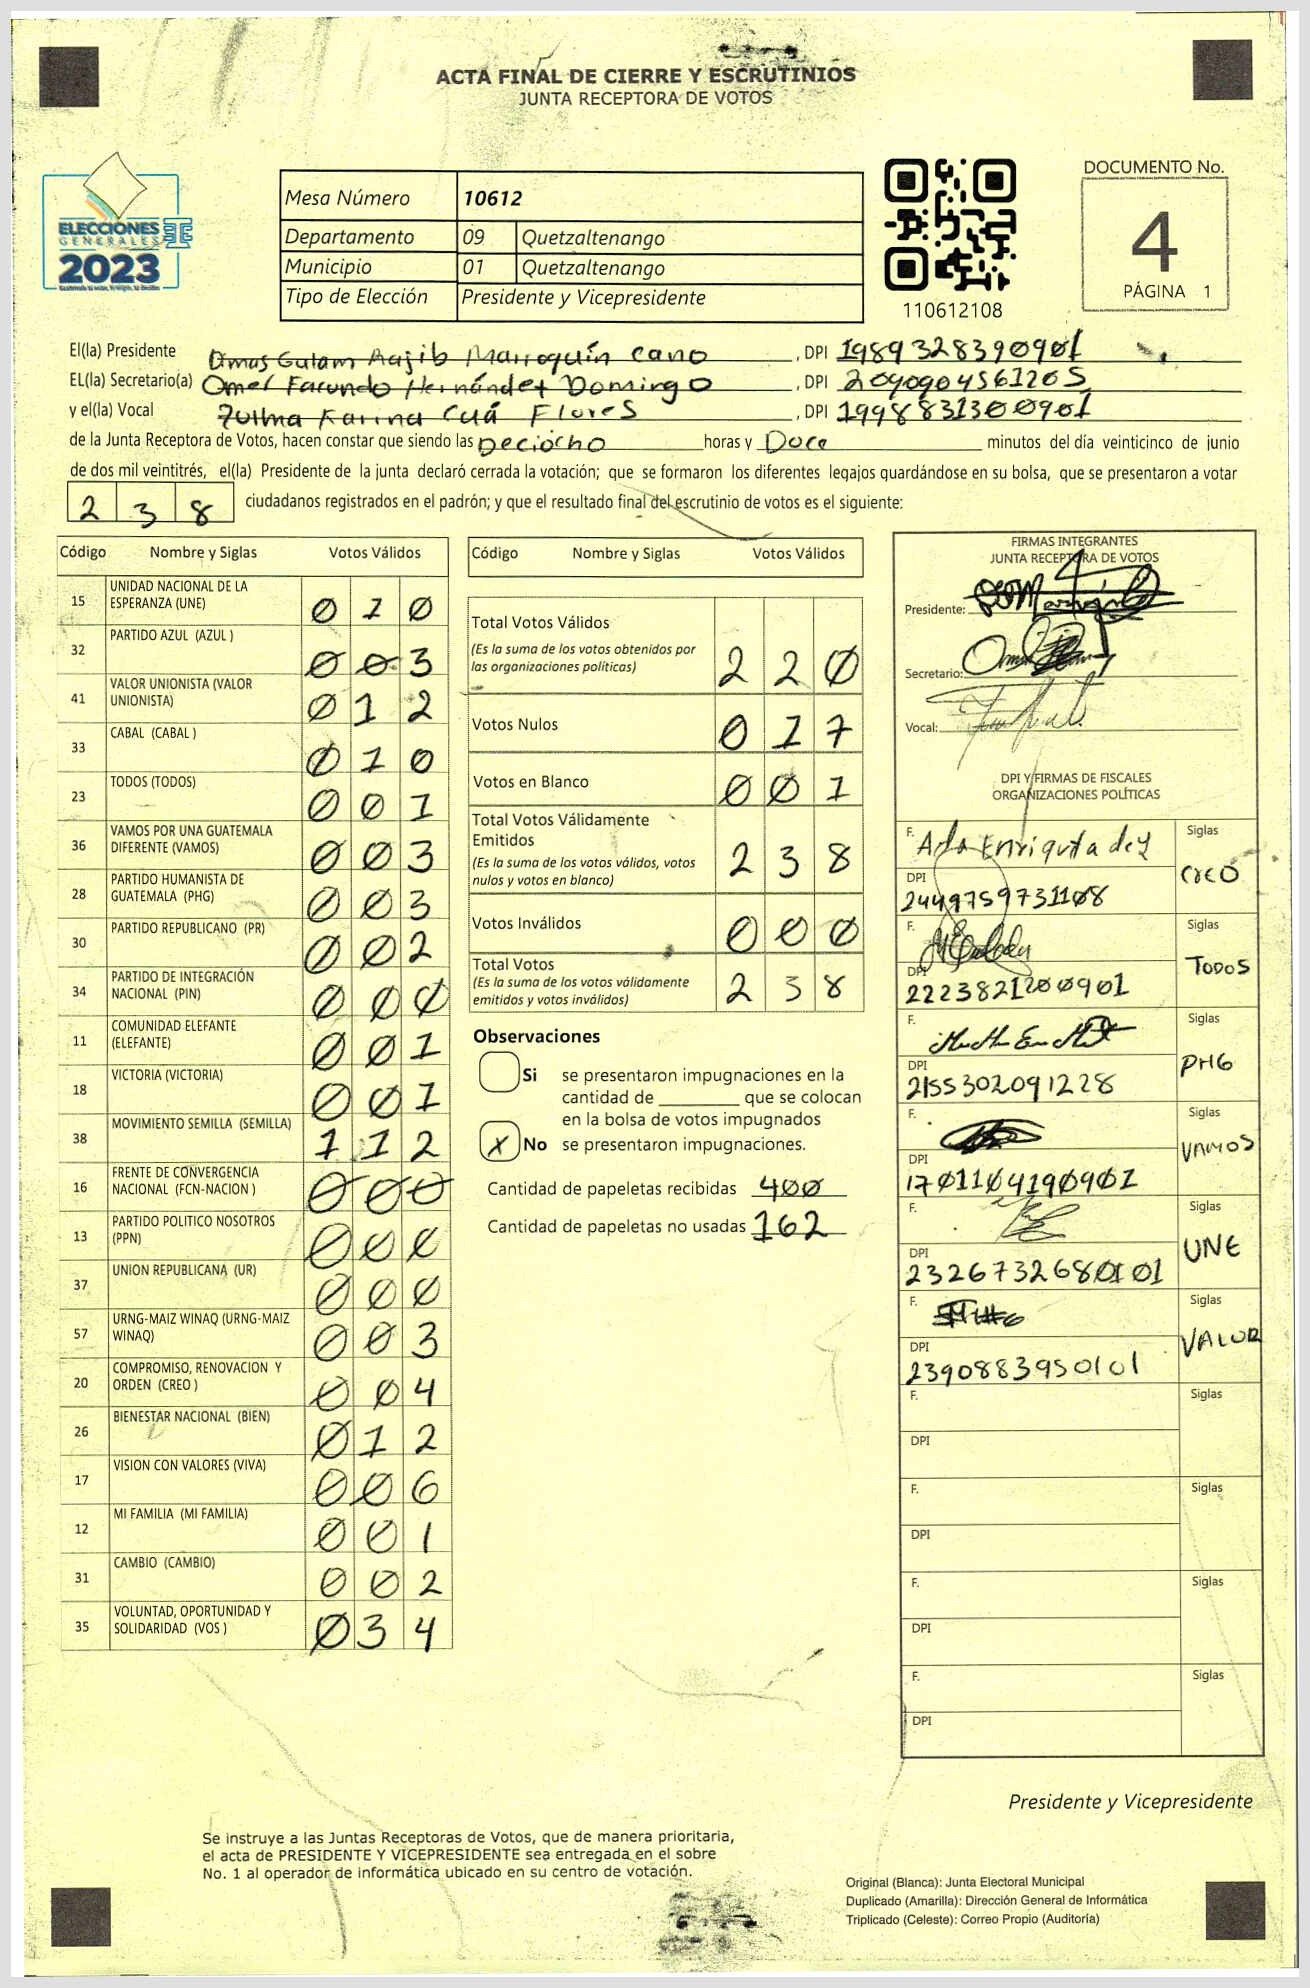 ACTA FINAL DE CIERRE Y ESCRUTINIOS
JUNTA RECEPTORA DE VOTOS
ELECCIONES
GENERALES
2023
Mesa Número 10612
Departamento 09 Quetzaltenango
Municipio 01 Quetzaltenango
Tipo de Elección Presidente y Vicepresidente
110612108
DOCUMENTO No.
4
PÁGINA 1
El(la) Presidente Dimas Gulam Aajib Marroquín Cano , DPI 1989328390901
EL(la) Secretario(a) Omer Facundo Hernández Domingo , DPI 2090904561205
y el(la) Vocal Zulma Karina Cuá Flores , DPI 1998831300901
de la Junta Receptora de Votos, hacen constar que siendo las Deciocho horas y Doce minutos del día veinticinco de junio
de dos mil veintitrés, el(la) Presidente de la junta declaró cerrada la votación; que se formaron los diferentes legajos quardándose en su bolsa, que se presentaron a votar
2 3 8 ciudadanos registrados en el padrón; y que el resultado final del escrutinio de votos es el siguiente:
Código Nombre y Siglas Votos Válidos
15 UNIDAD NACIONAL DE LA ESPERANZA (UNE) 0 1 0
32 PARTIDO AZUL (AZUL ) 0 0 3
41 VALOR UNIONISTA (VALOR UNIONISTA) 0 1 2
33 CABAL (CABAL ) 0 1 0
23 TODOS (TODOS) 0 0 1
36 VAMOS POR UNA GUATEMALA DIFERENTE (VAMOS) 0 0 3
28 PARTIDO HUMANISTA DE GUATEMALA (PHG) 0 0 3
30 PARTIDO REPUBLICANO (PR) 0 0 2
34 PARTIDO DE INTEGRACIÓN NACIONAL (PIN) 0 0 0
11 COMUNIDAD ELEFANTE (ELEFANTE) 0 0 1
18 VICTORIA (VICTORIA) 0 0 1
38 MOVIMIENTO SEMILLA (SEMILLA) 1 1 2
16 FRENTE DE CONVERGENCIA NACIONAL (FCN-NACION ) 0 0 0
13 PARTIDO POLITICO NOSOTROS (PPN) 0 0 0
37 UNION REPUBLICANA (UR) 0 0 0
57 URNG-MAIZ WINAQ (URNG-MAIZ WINAQ) 0 0 3
20 COMPROMISO, RENOVACION Y ORDEN (CREO ) 0 0 4
26 BIENESTAR NACIONAL (BIEN) 0 1 2
17 VISION CON VALORES (VIVA) 0 0 6
12 MI FAMILIA (MI FAMILIA) 0 0 1
31 CAMBIO (CAMBIO) 0 0 2
35 VOLUNTAD, OPORTUNIDAD Y SOLIDARIDAD (VOS ) 0 3 4
Código Nombre y Siglas Votos Válidos
Total Votos Válidos 2 2 0
(Es la suma de los votos obtenidos por
las organizaciones políticas)
Votos Nulos 0 1 7
Votos en Blanco 0 0 1
Total Votos Válidamente
Emitidos 2 3 8
(Es la suma de los votos válidos, votos
nulos y votos en blanco)
Votos Inválidos 0 0 0
Total Votos 2 3 8
(Es la suma de los votos válidamente
emitidos y votos inválidos)
Observaciones
Si se presentaron impugnaciones en la
cantidad de ________ que se colocan
en la bolsa de votos impugnados
X No se presentaron impugnaciones.
Cantidad de papeletas recibidas 400
Cantidad de papeletas no usadas 162
FIRMAS INTEGRANTES
JUNTA RECEPTORA DE VOTOS
Presidente:
Secretario:
Vocal:
DPI Y FIRMAS DE FISCALES
ORGANIZACIONES POLÍTICAS
F. Siglas
DPI 2449759731108 CREO
F. Siglas
DPI 2223821200901 TODOS
F. Siglas
DPI 2155302091228 PHG
F. Siglas
DPI 1701104190901 VAMOS
F. Siglas
DPI 2326732680101 UNE
F. Siglas
DPI 2390883950101 VALOR
F. Siglas
DPI
F. Siglas
DPI
F. Siglas
DPI
F. Siglas
DPI
Presidente y Vicepresidente
Se instruye a las Juntas Receptoras de Votos, que de manera prioritaria,
el acta de PRESIDENTE Y VICEPRESIDENTE sea entregada en el sobre
No. 1 al operador de informática ubicado en su centro de votación.
Original (Blanca): Junta Electoral Municipal
Duplicado (Amarilla): Dirección General de Informática
Triplicado (Celeste): Correo Propio (Auditoría)